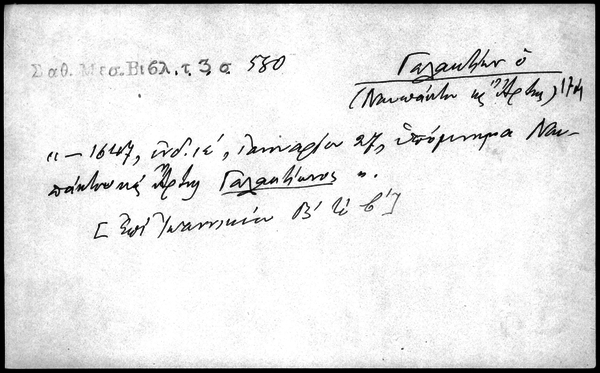 Σαθ. Μεσ. Βιβλ. τ. 3, σ. 580
Γαλακτίων ὁ
(Ναυπάκτου κ Ἄρτης) 17
"— 1647, ἰνδ. ιέ, Ἰανουαρίου 27, ὑπόμνημα Ναυ-
πάκτου κ Ἄρτης Γαλακτίωνος ".
[Ἐπί Ἰωαννικίου Β' τὸ β']